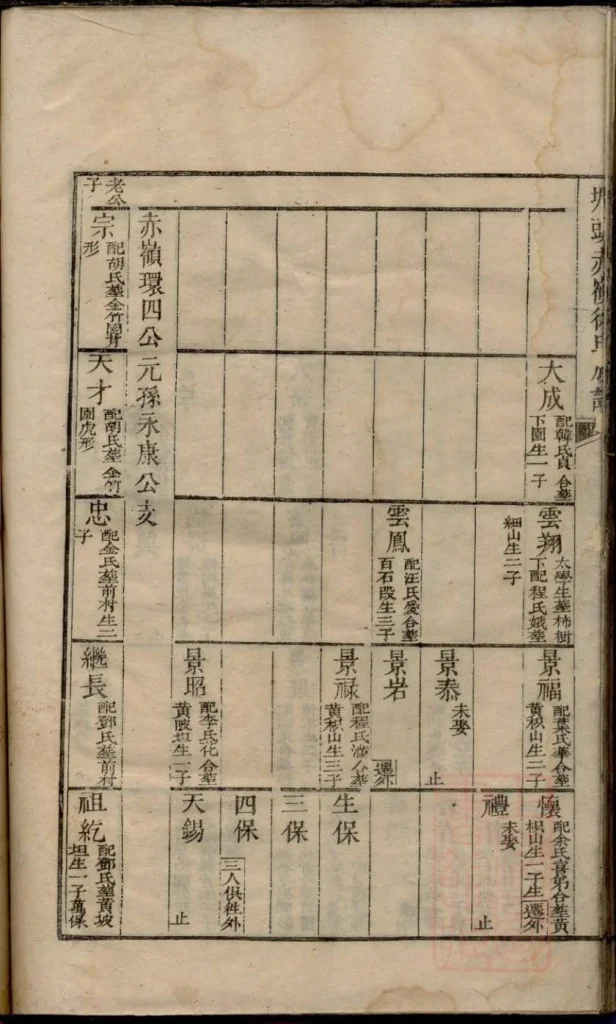 大成
配韓氏貞合葬
下園生一子
雲翔
太學生葬柿樹
下配程氏娥葬
細山生二子
雲鳳
配汪氏愛合葬
百石段生三子
景福
配葉氏華合葬
黃枳山生二子
景泰
未娶
止
景岩
遷外
景祿
配程氏滿合葬
黃枳山生三子
景昭
配李氏化合葬
黃陂坦生一子
懷
配余氏喜弟合葬黃
枳山生二子生遷外
禮
未娶
止
生保
三保
四保
三人俱徃外
天錫
止
赤嶺環四公元孫永康公支
老公
子
宗
配胡氏葬金竹園
形
天才
配胡氏葬金竹
園虎形
忠
配金氏葬前村生二
子
繼長
配鄧氏葬前村
祖紇
配鄧氏葬黃坡
坦生一子萬保